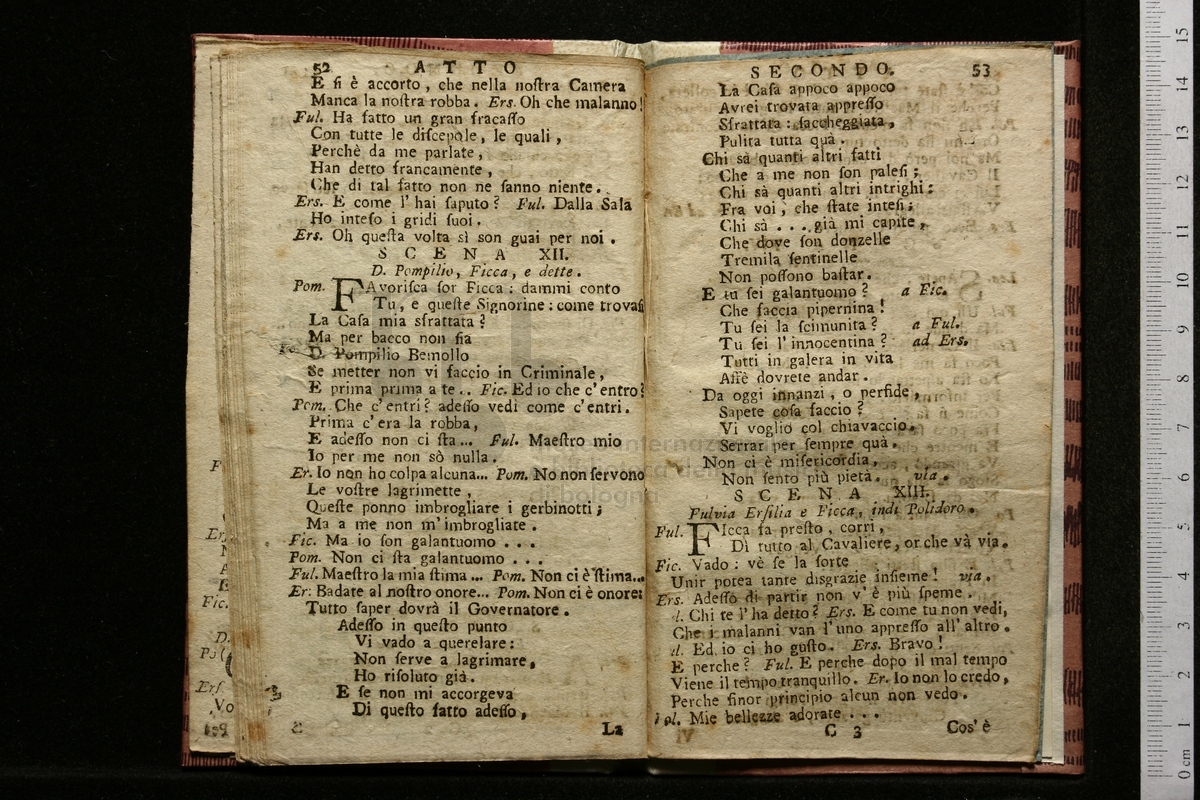 52 ATTO
E ſi è accorto, che nella noſtra Camera
Manca la noſtra robba. Ers. Oh che malanno!
Ful. Ha fatto un gran fracaſſo
Con tutte le diſcepole, le quali,
Perchè da me parlate,
Han detto francamente,
Che di tal fatto non ne ſanno niente.
Ers. E come l'hai ſaputo? Ful. Dalla Sala
Ho inteſo i gridi ſuoi.
Ers. Oh queſta volta sì son guai per noi.
SCENA XII.
D. Pompilio, Ficca, e dette.
Pom. FAvoriſca ſor Ficca: dammi conto
Tu, e queſte Signorine: come trovaſi
La Caſa mia sfrattata?
Ma per bacco non ſia
D. Pompilio Bemollo
Se metter non vi faccio in Criminale,
E prima prima a te.. Fic. Ed io che c'entro?
Pom. Che c'entri? adeſſo vedi come c'entri.
Prima c'era la robba,
E adeſſo non ci ſta... Ful. Maeſtro mio
Io per me non sò nulla.
Er. Io non ho colpa alcuna... Pom. No non ſervono
Le voſtre lagrimette,
Queſte ponno imbrogliare i gerbinotti;
Ma a me non m'imbrogliate.
Fic. Ma io ſon galantuomo...
Pom. Non ci ſta galantuomo...
Ful. Maeſtro la mia ſtima... Pom. Non ci è ſtima...
Er: Badate al noſtro onore... Pom. Non ci è onore:
Tutto ſaper dovrà il Governatore.
Adeſſo in queſto punto
Vi vado a querelare:
Non ſerve a lagrimare,
Ho riſoluto già.
E ſe non mi accorgeva
Di queſto fatto adeſſo,
La
SECONDO. 53
La Caſa appoco appoco
Avrei trovata appreſſo
Sfrattata: ſaccheggiata,
Pulita tutta quà.
Chi sà quanti altri fatti
Che a me non ſon paleſi;
Chi sà quanti altri intrighi:
Fra voi, che ſtate inteſi;
Chi sà... già mi capite,
Che dove ſon donzelle
Tremila ſentinelle
Non poſſono baſtar.
E tu ſei galantuomo? a Fic.
Che faccia pipernina!
Tu ſei la ſcimunita? a Ful.
Tu ſei l'innocentina? ad Ers.
Tutti in galera in vita
Affè dovrete andar.
Da oggi innanzi, o perfide,
Sapete coſa faccio?
Vi voglio col chiavaccio
Serrar per ſempre quà.
Non ci è miſericordia,
Non ſento più pietà. via.
SCENA XIII.
Fulvia Erſilia e Ficca, indi Polidoro.
Ful. FIcca fa preſto, corri,
Dì tutto al Cavaliere, or che và via.
Fic. Vado: vè ſe la ſorte
Unir potea tante disgrazie inſieme! via.
Ers. Adeſſo di partir non v'è più ſpeme.
Chi te l'ha detto? Ers. E come tu non vedi,
Che i malanni van l'uno appreſſo all'altro.
Ed io ci ho guſto. Ers. Bravo!
E perche? Ful. E perche dopo il mal tempo
Viene il tempo tranquillo. Er. Io non lo credo,
Perche finor principio alcun non vedo.
Mie bellezze adorate...
C 3 Cos'è